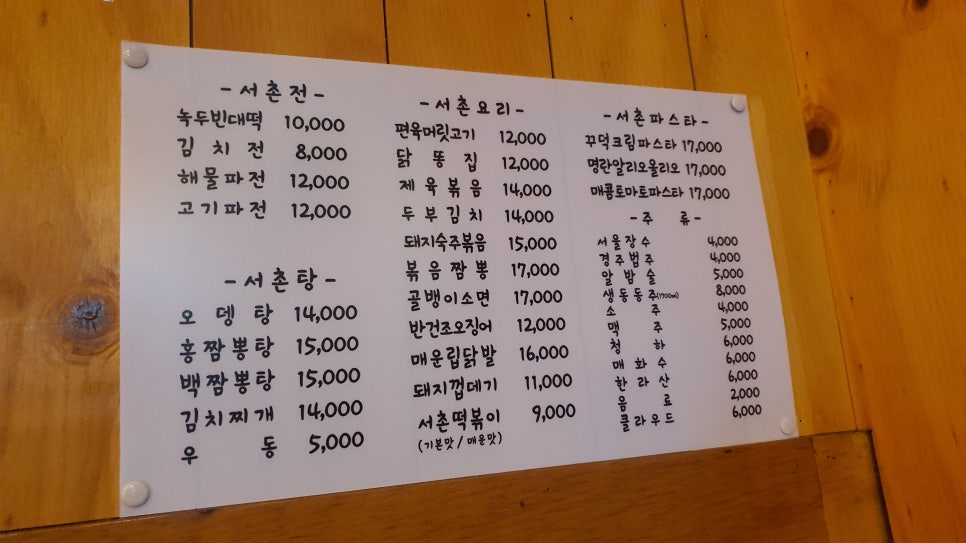 - 서촌전 -
녹두빈대떡 10,000
김치전 8,000
해물파전 12,000
고기파전 12,000
- 서촌탕 -
오뎅탕 14,000
홍짬뽕탕 15,000
백짬뽕탕 15,000
김치찌개 14,000
우동 5,000
- 서촌요리 -
편육머릿고기 12,000
닭똥집 12,000
제육볶음 14,000
두부김치 14,000
돼지숙주볶음 15,000
볶음짬뽕 17,000
골뱅이소면 17,000
반건조오징어 12,000
매운립닭발 16,000
돼지껍데기 11,000
서촌떡볶이 9,000
(기본맛 / 매운맛)
- 서촌파스타 -
꾸덕크림파스타 17,000
명란알리오올리오 17,000
매콤토마토파스타 17,000
- 주류 -
서울장수 4,000
경주법주 4,000
알밤술 5,000
생동동주(1700ml) 8,000
소주 4,000
맥주 5,000
청하 6,000
매화수 6,000
한라산 6,000
음료 2,000
클라우드 6,000